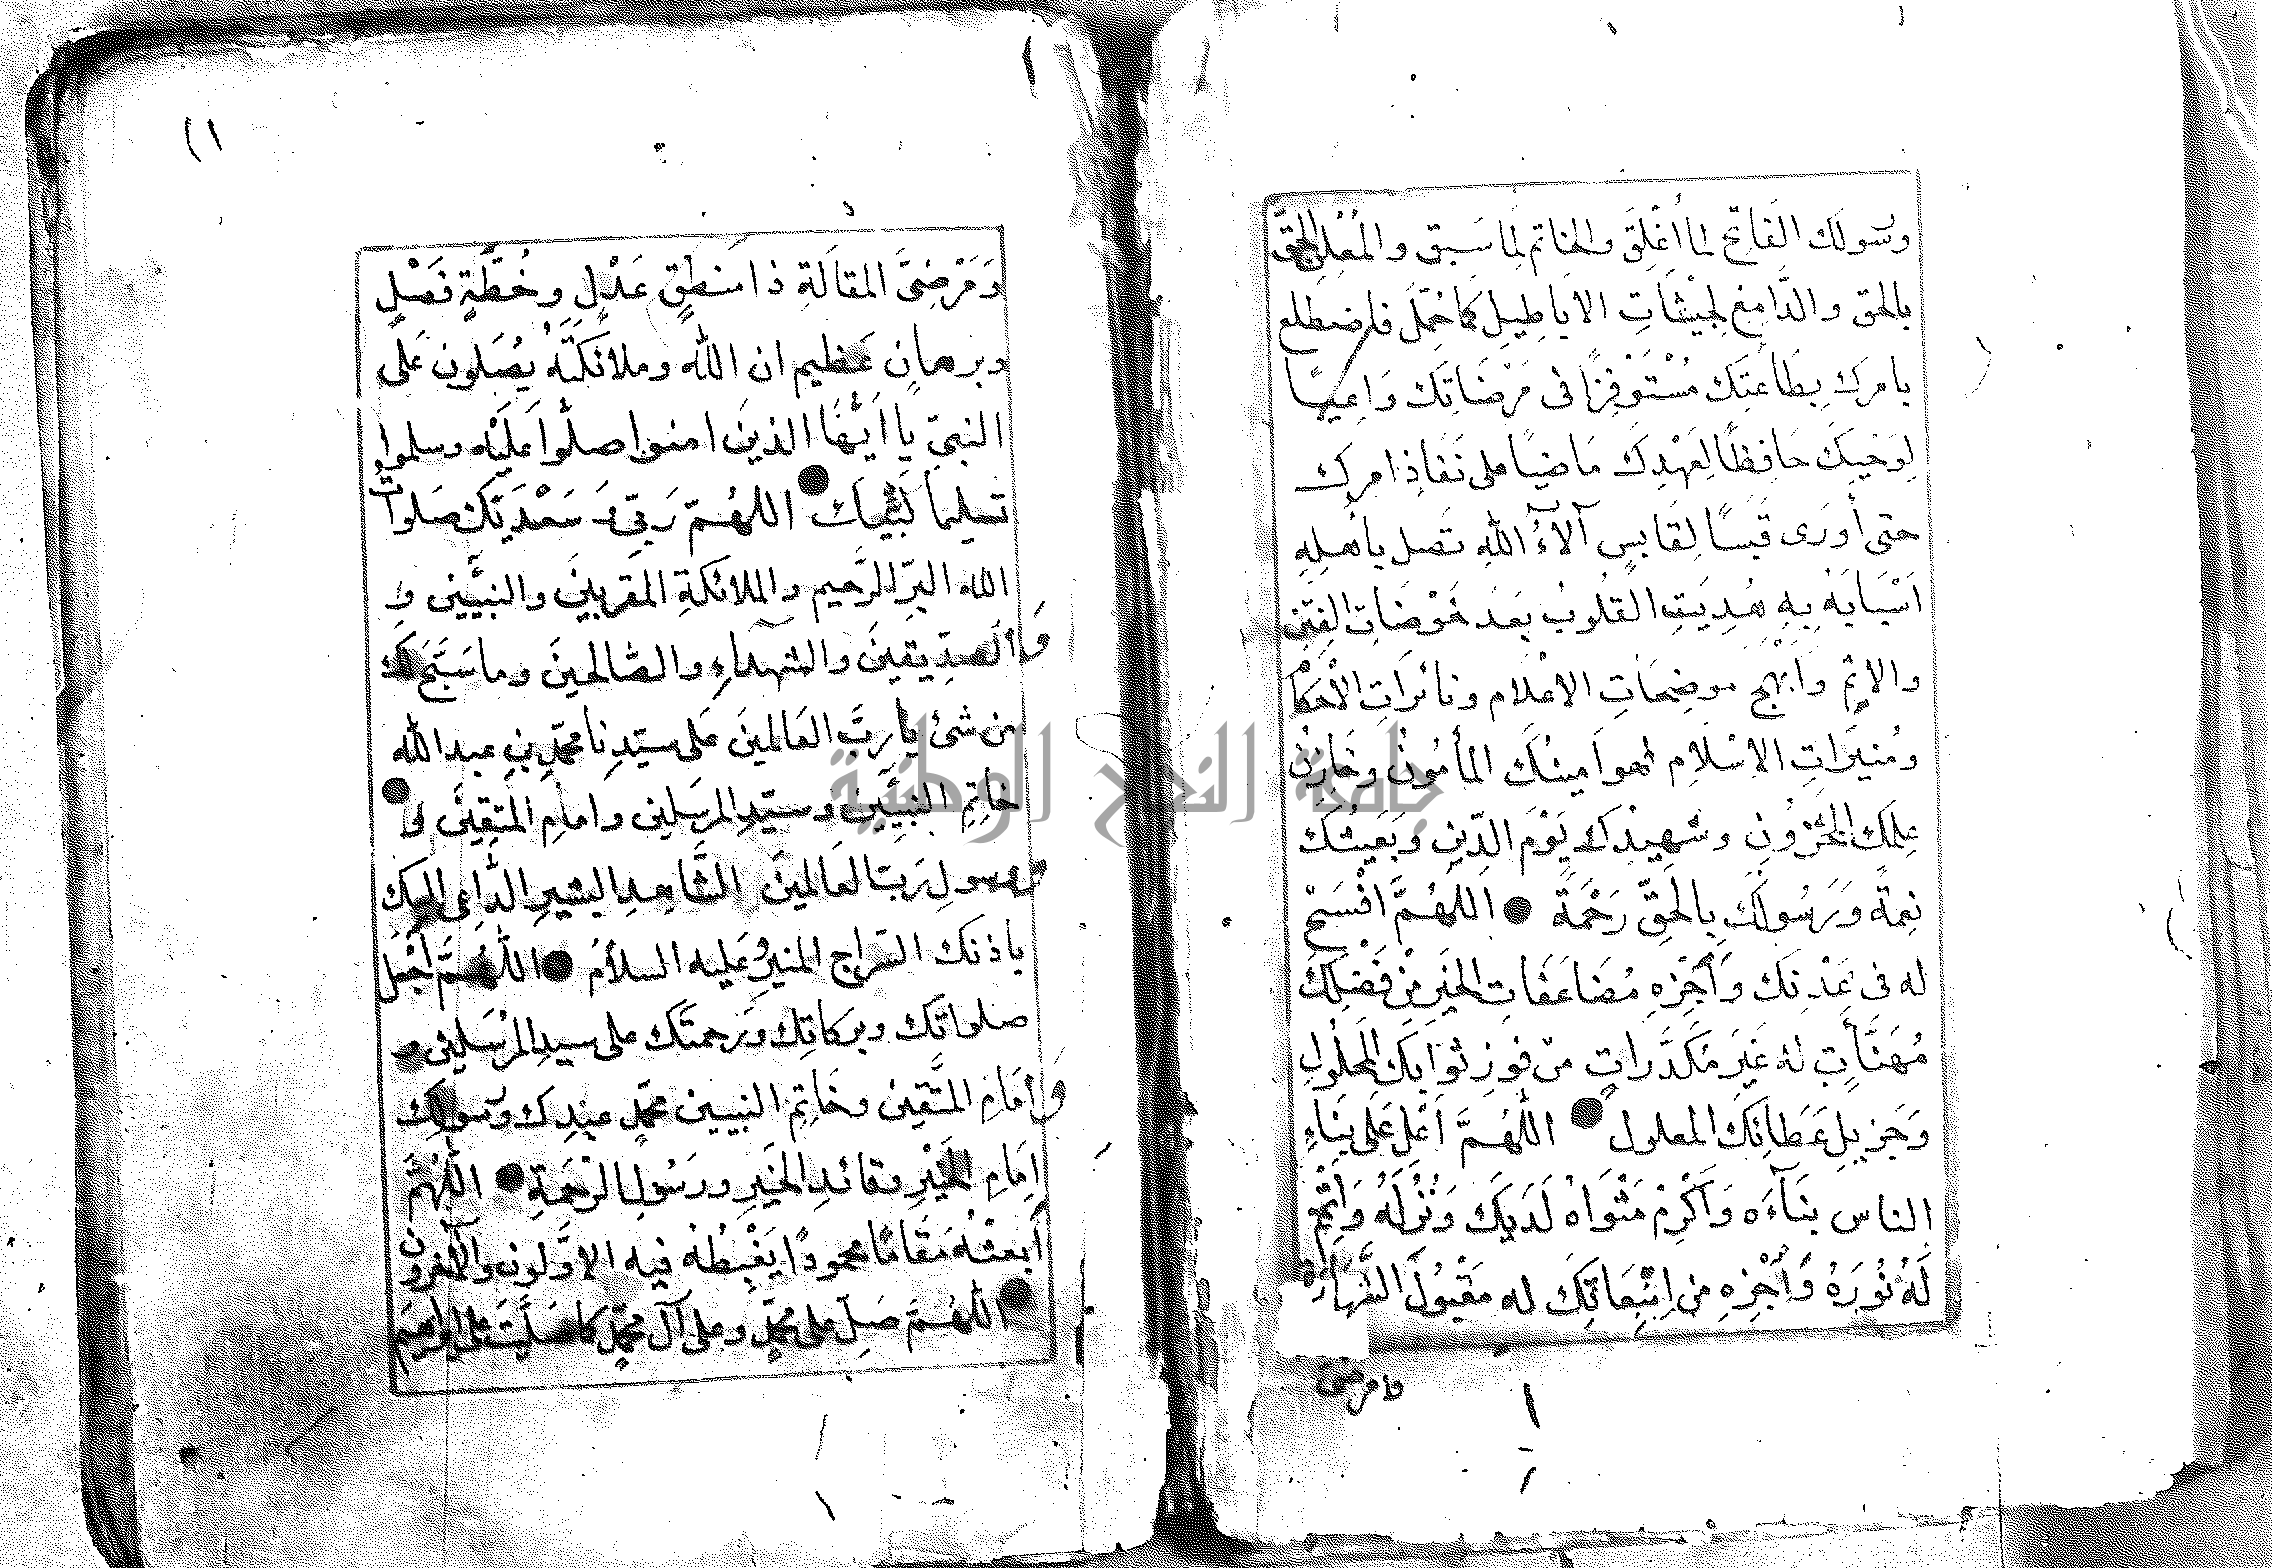 ورسولك الفَاتِح لما أُغْلِقَ والخاتم لِمَا سَبق والمُعْلِن الحَق
بالحق والدَّامِغ لِجَيْشَاتِ الاباطِيلِ كَمَا حُمِّلَ فاضطلع
بامرك بِطَاعَتِكَ مُسْتَوْفِزًا فى مَرْضَاتِكَ وَاعِيًا
لِوَحْيِكَ حَافِظًا لِعَهْدِكَ مَاضِيًا على نَفَاذِ امرك
حتى أَورَى قَبَسًا لِقَابِسٍ آلآءُ اللهِ تَصل بأهلِهِ
اَسْبَابَهُ بِهِ هُدِيَتِ القُلوبُ بَعدَ خَوْضَاتِ الفِتَنِ
والاِثمِ وَاَبْهَجَ موضِحَاتِ الاَعْلام ونَائرَاتِ الأَحكَا
ومُنِيرَاتِ الاِسْلامِ فهو اَمينُكَ المأمُونُ وخَازِنُ
عِلمِكَ المَخْزُونِ وشهِيدُكَ يَوْمَ الدِّينِ وبَعِيثُكَ
نِعمةً ورَسُولُكَ بِالحَقِّ رَحْمَةً اللهُمَّ افْسَحْ
له فى عَدْنِكَ وَاَجْزِهِ مُضَاعَفَاتِ الخَيرِ مِنْ فَضْلِكَ
مُهَنَّأتٍ لهُ غَيرَ مُكَدَّرَاتٍ مِن فَوزِ ثَوَابِكَ المَحْلُولِ
وَجَزِيلِ عَطَائِكَ المعلول اللّهُمَّ اَعْلِ عَلَى بِنَاءِ
الناس بِنَآءَه وَاَكْرِمْ مَثْوَاهُ لَدَيكَ وَنُزُلَهُ وَاَتْمِم
لَهُ نُورَهُ وَاَجْزِهِ مِن اِبْتِعَاثِكَ له مَقْبُولَ الشَّهادَةِ
ومرضى
وَمَرْضِىَّ المقَالَةِ ذا مَنطِقٍ عَدْلٍ وخُطَّةٍ فَصْلٍ
وبرهانٍ عَظيم ان الله وملائكَتَهُ يُصَلون عَلَى
النبىِّ يا اَيُّهَا الذينَ امنوا صلُّوا عَلَيْه وسلموا
تسليمًا لَبَّيْكَ اللهُمّ رَبّى وَسَعْدَيْكَ صَلَواتُ
الله البَرِّ الرَّحِيم والملائكةِ المقربينَ والنبيّينَ وَ
وَالصِدِّيقينَ والشهداءِ والصّالحينَ وما سَبَّحَ لَكَ
من شىْ يارَبَّ العَالمينَ عَلى سيّدِنا محمّدِ بنِ عبد الله
خاتِمِ النبيّينَ وسيّدِ المرسَلين وامامِ المتقِينَ و
رسولِ رَبّ العَالمينَ الشَّاهِدِ البشيرِ الدَّاعى اليك
باذنك السّراج المنيرِ وعَليه السلامُ اللّهُمَّ اجْعَل
صلواتك وبركاتِكَ ورحمتَك على سيدِ المُرْسَلينَ
وَاِمَامِ المتَّقِينَ وخَاتِمِ النبيين محمّدٍ عبدِك ورسولك
اِمَامِ الخَيْرِ وقائدِ الخَيرِ ورَسُولِ الرَّحْمَةِ اللّهُمَّ
اَبعَثْهُ مَقَامًا محمودًا يَغْبِطُهُ فيه الاوَّلونَ والآخرون
اللهُمَّ صَلِّ على محمّدٍ وعلى آلِ محمّدٍ كما صَلَّيْتَ على ابراهيمَ
جامعة النجاح الوطنية